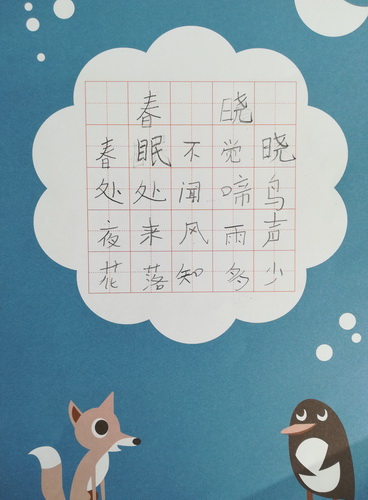 春晓
春眠不觉晓
处处闻啼鸟
夜来风雨声
花落知多少